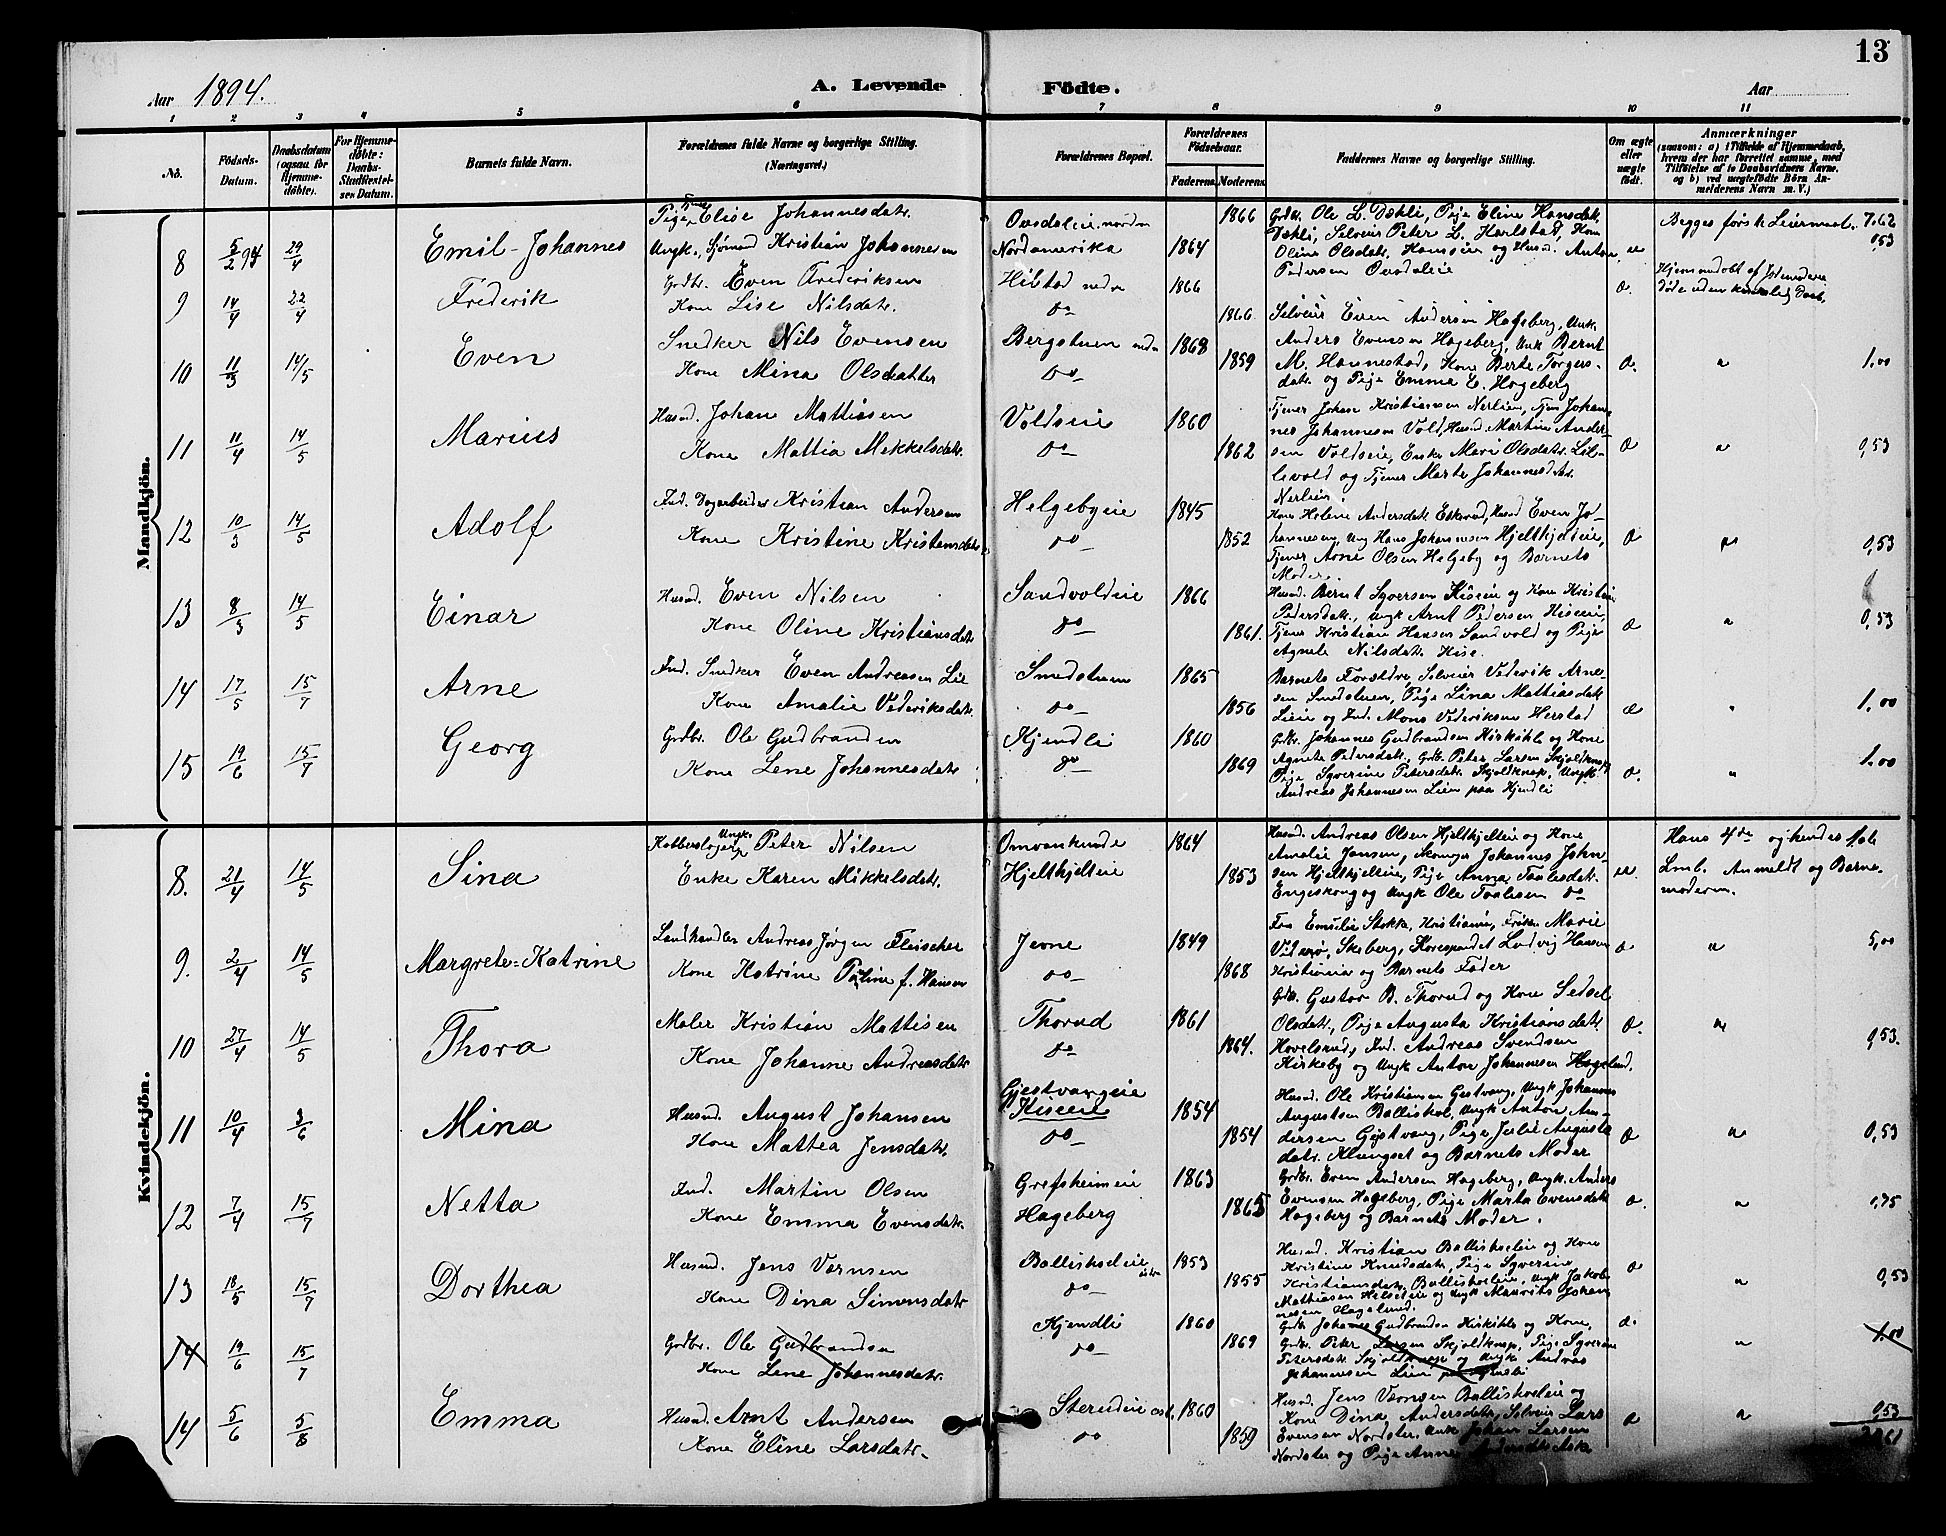 13
Aar 1894.
A. Levende Födte.
Aar
1 2 3 4 5 6 7 8 9 10 11
No.
Födsels-Datum.
Daabsdatum (ogsaa for Hjemmedöbte).
For Hjemmedöbte: Daabs-Stadfæstelses Datum.
Barnets fulde Navn.
Forældrenes fulde Navne og borgerlige Stilling. (Næringsvei.)
Forældrenes Bopæl.
Forældrenes Födselsaar.
Faderens. Moderens.
Faddernes Navne og borgerlige Stilling.
Om ægte eller uægte födt.
Anmærkninger
(saasom: a) i Tilfælde af Hjemmedaab, hvem der har forrettet samme, med Tilföielse af to Daabsvidners Navne, og b) ved uægtefödte Börn Anmelderens Navn m. V.)
Mandkjön.
8 5/2 94 29/4 Emil-Johannes
Pige Elise Johannesdatr.
Ungk., Sjömand Kristian Johannesen
Nordamerika
1864 1866
Grdbr. Ole L. Dæhli, Pige Eline Hansdatr.
Dæhli, Selveier Peter L. Harlstad, Kone
Oline Olsdatr. Hansseie og Husmd. Anton
Pedersen
Begges första Leiermaal. 7.62
0,53
9 14/4 22/4 Frederik
Grdbr. Even Frederiksen
Kone Lise Nilsdatr.
do
1866
1866
Hjemmedöbt af Jordmoderen
döde uden kirkelig Daab.
10 11/3 14/5 Even
Snedker Nils Evensen
Kone Mina Olsdatter
Bergstuen
do
1868
1859
Selveier Even Andersen Hageberg, Ungk.
Anders Evensen Hageberg, Ungk Bernt
M. Hannestad, Kone Berte Torgers-
datr. og Pige Emma E. Hageberg
1.00
11 11/4 14/5 Marius
Husmd. Johan Mattiasen
Kone Mattia Mikkelsdatr.
Voldseie
do
1860
1862
Tjener Johan Kristiansen Nerlien, Tjen Johan-
nes Johannesen Vold, Husmd. Martin Ander-
sen Voldseie, Enke Mari Olsdatr. Lil-
levold og Tjener Marte Johannesdatr.
Nerlien.
0,53
12 10/3 14/5 Adolf
Ind. Dagarbeider Kristian Andersen
Kone Kristine Kristiansdatr.
Helgebyeie
do
1845
1852
Kone Helene Andersdatr. Ekerud, Husmd Even Jo-
hannesen, Ung Hans Johannesen Hjelthjelteie,
Tjener Arne Olsen Helgeby og Barnets
Moder.
0,53
13 8/3 14/5 Einar
Husmd. Even Nilsen
Kone Oline Kristiansdatr
Sandvoldeie
do
1866
1861.
Husmd. Bernt Syversen Hiseie og Kone Kristine
Pedersdatr., Ungk Arnt Pedersen Hiseie,
Tjener Kristian Hansen Sandvold og Pige
Agnete Nilsdatr. Hise.
0,53
14 17/5 15/7 Arne
Ind. Snedker Even Andreasen Lie
Kone Amalie Vederiksdatr.
Smedstuen
do
1865
1856
Barnets Forældre, Selveier Vederik Arne-
sen Smedstuen, Pige Lina Mathiasdatr.
Lieie og Ind. Mons Vederiksen Herstad
1.00
15 19/6 15/7 Georg
Grdbr. Ole Gudbrandsen
Kone Lene Johannesdatr
Kjendli
do
1860
1869
Grdbr. Johannes Gudbrandsen Kirkihle og Kone
Agnete Pedersdatr. Grdb. Peter Larsen Skjoldknap
Pige Syverine Petersdatr. Skjoldknap, Ungk
Andreas Johannesen Lien paa Kjendli
1.00
Kvindekjön.
8. 21/4 14/5 Sina
Ungk. Peter Nilsen
Enke Karen Mikkelsdatr.
Omvankende
Hjelthjelteie
1864
1853
Husmd. Andreas Olsen Hjelthjelteie og Kone
Amalie Jansen, Skomager Johannes John-
sen Hjelthjelteie, Pige Anna Paalsdatr.
Engeskoug og Ungk Ole Paalsen do
Hans 4de og hendes
Lmb. Anmeldt og Barne-
moderen.
9. 2/4 14/5 Margrete-Katrine
Landhandler Andreas Jörgen Fleischer
Kone Katrine Pauline f. Hansen
Jevne
do
1849
1868
Fru Emilie Stokke, Kristiania, Fröken Marie
Viderö, Skeberg, Korrespondet Ludvig Hansen
Kristiania og Barnets Fader
5,00
10 27/4 14/5 Thora
Maler Kristian Mattisen
Kone Johanne Andreasdatr
Thorud
do
1861
1864.
Grdb. Gustav B. Thorud og Kone Sedsel
Olsdatr., Pige Augusta Kristiansdatr.
Hovelsrud, Ind. Andreas Svendsen
Kirkeby og Ungk Anton Johannesen Hagelund.
0,53.
11 10/4 3/6 Mina
Husmd. August Johansen
Kone Mattea Jensdatr.
Gjestvangeie
Hiseeie
do
1854
1854
Husmd. Ole Kristiansen Gjestvang, Ungk Johannes
Augustsen Ballishol, Ungk Anton An-
dersen Gjestvang, Pige Julie Augusts-
datr. Klungset og Barnets Moder
0,53
12 7/4 15/7 Netta
Ind. Martin Olsen
Kone Emma Evensdatr.
Grefsheimeie
Hageberg
1863
1865
Grdbr. Even Andersen Hageberg, Ungk. Anders
Evensen Hageberg, Pige Marta Evensdatr
Hageberg og Barnets Moder.
0,75
13 18/5 15/7 Dorthea
Husmd. Jens Vernsen
Kone Dina Simensdatr
Balliskoleie
do
1853
1855
Husmd. Kristian Balliskoleie og Kone
Kristine Knudsdatr, Pige Syverine
Kristiansdatr, Balliskoleie, Ungk Jakob
Mathiasen Helseteie og Ungk Maurits Johan-
nesen Hagelund.
0,53
14 19/6 15/7
Grdbr. Ole Gudbrandsen
Kone Lene Johannesdatr.
Kjendli
do
1860
1869
Grdb. Johannes Gudbrandsen Kirkihle og Kone,
Grdbr. Peter Larsen Skjoldknap, Pige Syverine
Petersdatr. Skjoldknap og Ungk. Andreas
Johannesen Lien paa Kjendli
1.00
14 5/6 5/8 Emma
Husmd. Arnt Andersen
Kone Eline Larsdatr.
do
1860
1859
Husmd. Jens Vernsen Balliskoleie og
Kone Dina Andersdatr, Selveier Lars
Evensen Nordster, Ungk Johan Larsen
Nordster og Pige Anne
0,53